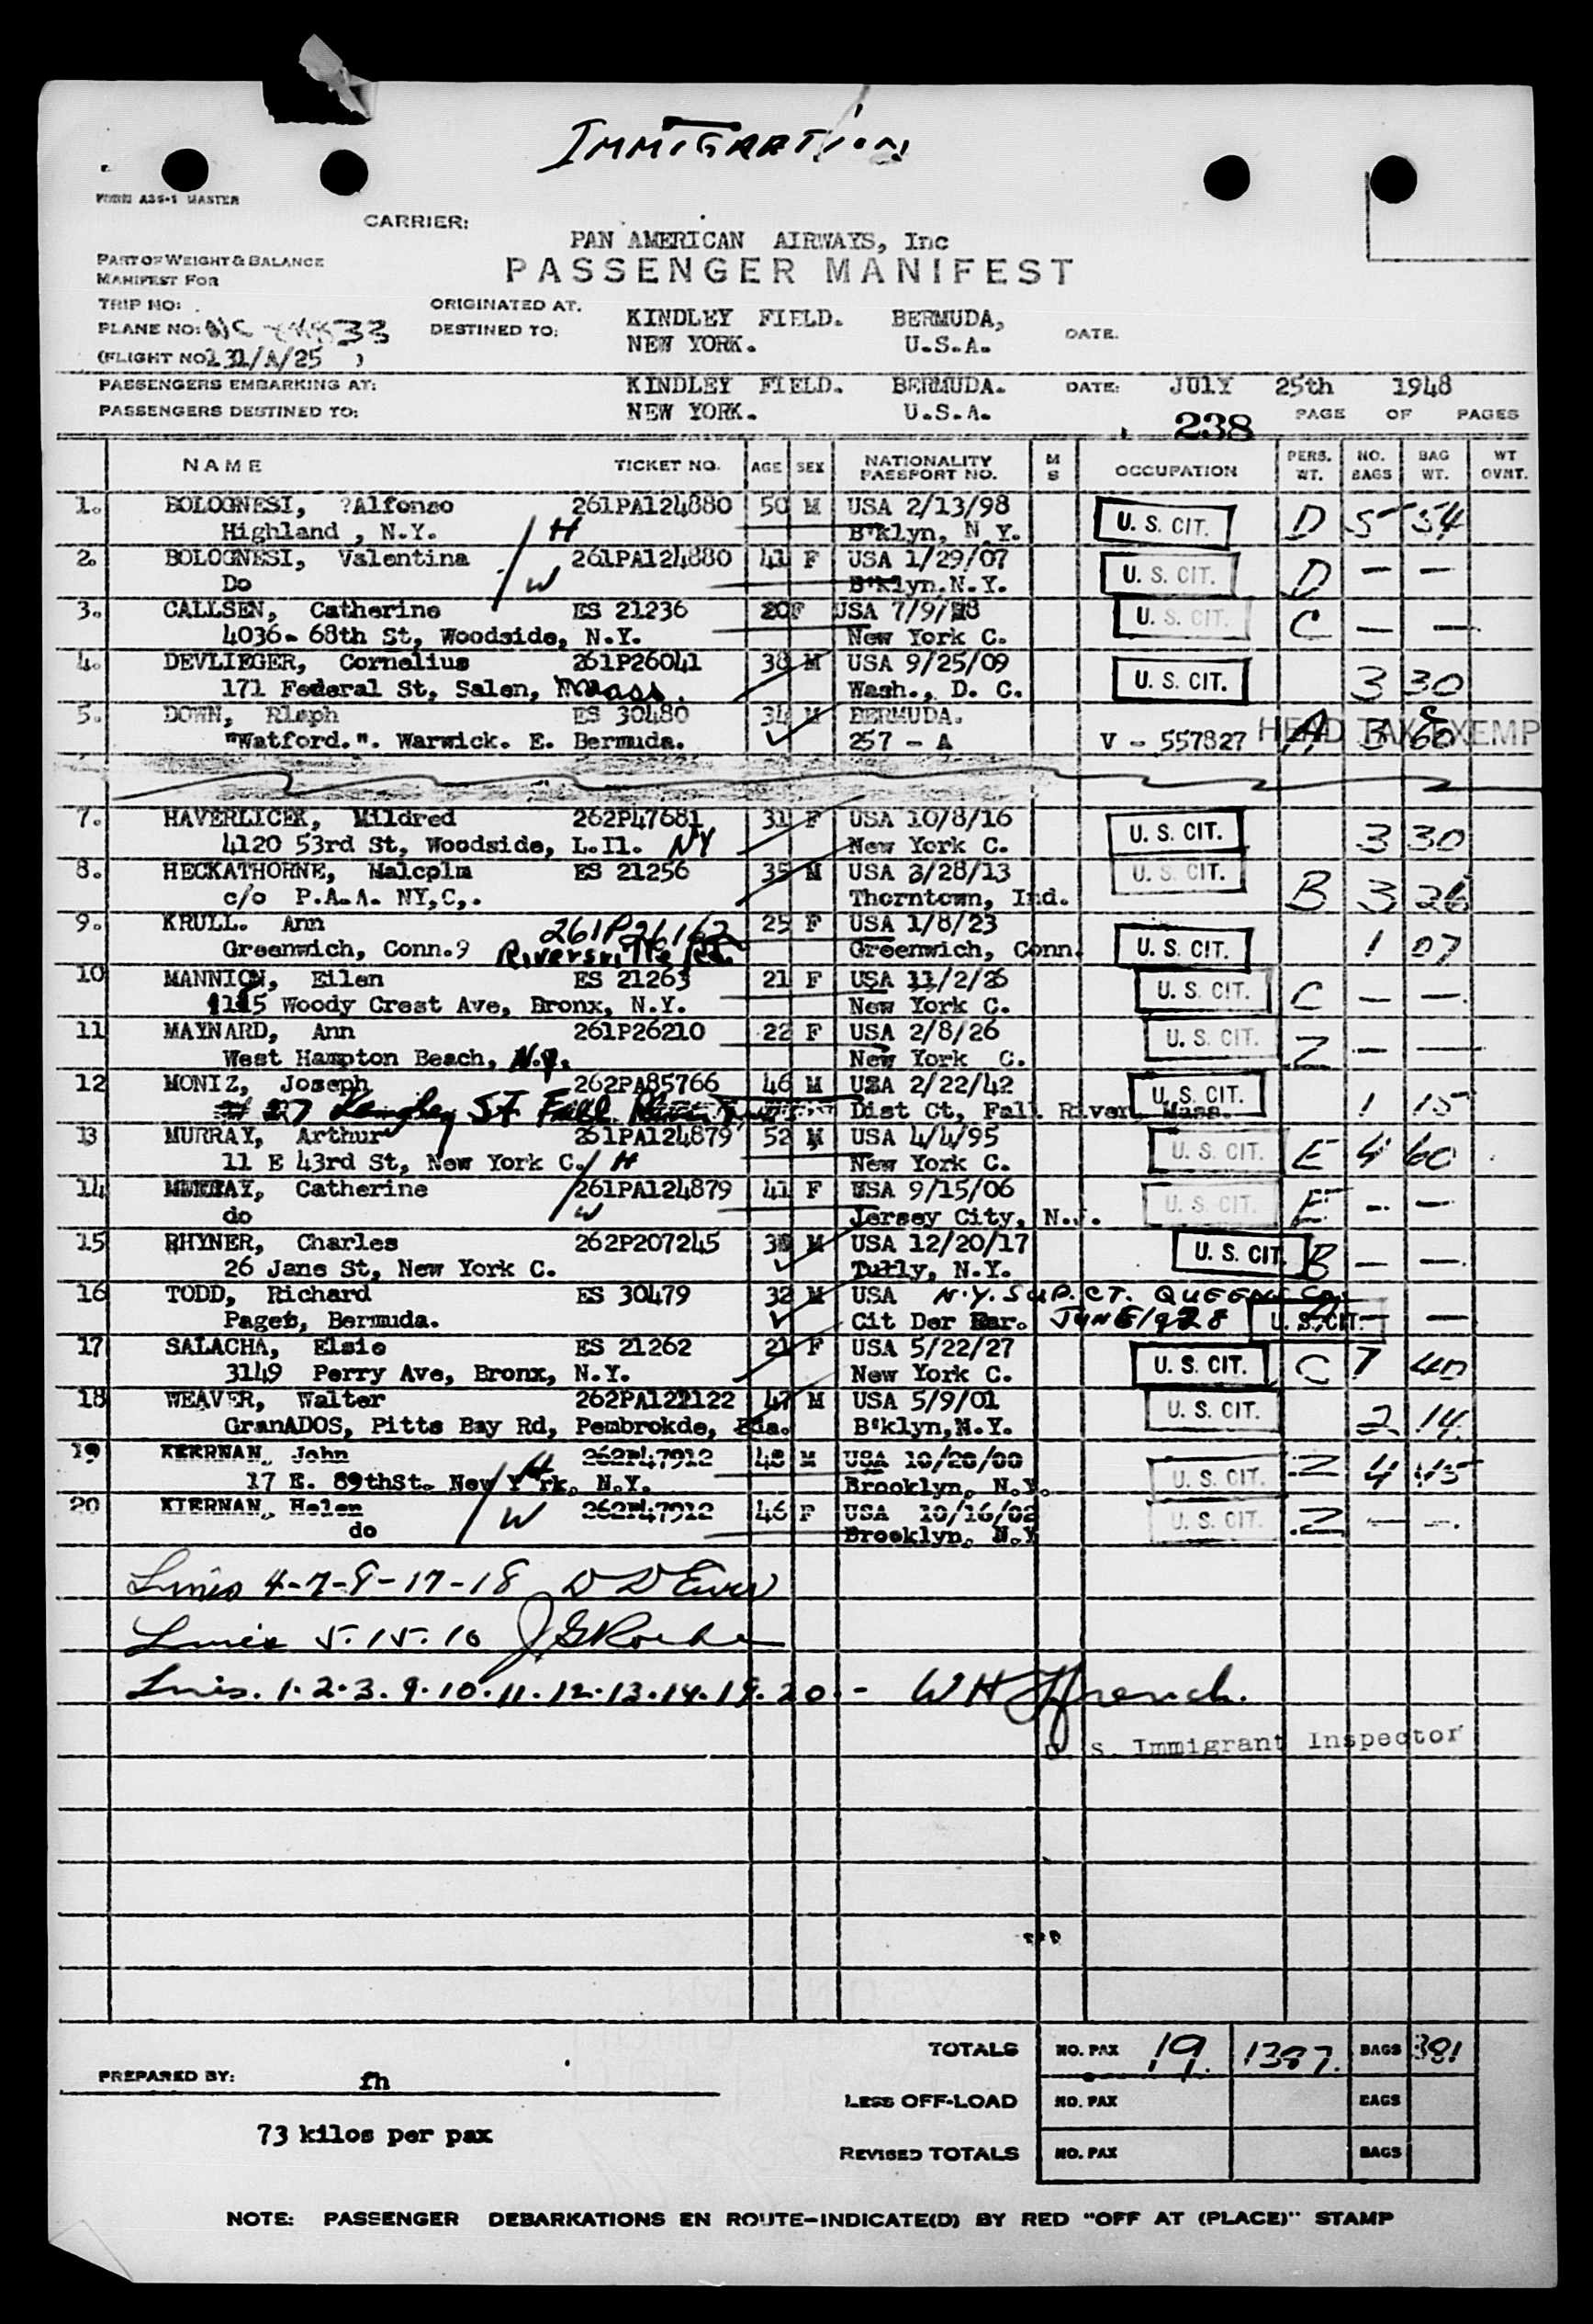 IMMIGRATION
FORM A36-1 MASTER
CARRIER:
PAN AMERICAN AIRWAYS, Inc
PART OF WEIGHT & BALANCE
MANIFEST FOR
PASSENGER MANIFEST
TRIP NO:
ORIGINATED AT.
KINDLEY FIELD. BERMUDA,
DATE.
PLANE NO:
DESTINED TO:
NEW YORK. U.S.A.
(FLIGHT NO 131/A/25 )
PASSENGERS EMBARKING AT: KINDLEY FIELD. BERMUDA. DATE: JULY 25th 1948
PASSENGERS DESTINED TO: NEW YORK. U.S.A. 238 PAGE OF PAGES
NAME TICKET NO. AGE SEX NATIONALITY PASSPORT NO. M S OCCUPATION PERS. WT. NO. BAGS BAG WT. WT OVNT.
1. BOLOGNESI, ?Alfonso 261PA124880 50 M USA 2/13/98 U. S. CIT. D 5 54
Highland , N.Y. H B'klyn, N.Y.
2. BOLOGNESI, Valentina 261PA124880 41 F USA 1/29/07 U. S. CIT. D — —
Do W B'klyn.N.Y.
3. CALLSEN, Catherine ES 21236 20F USA 7/9/28 U. S. CIT. C — —
4036- 68th St, Woodside, N.Y. New York C.
4. DEVLIEGER, Cornelius 261P26041 38 M USA 9/25/09 U. S. CIT. 3 30
171 Federal St, Salen, Mass. Wash., D. C.
5. DOWN, Rlaph ES 30480 34 M BERMUDA. HEAD TAX EXEMP
"Watford.". Warwick. E. Bermuda. 257 - A V - 557827 A 3 60
7. HAVERLICEK, Mildred 262P47681 31 F USA 10/8/16 U. S. CIT. 3 30
4120 53rd St, Woodside, L.Il. NY New York C.
8. HECKATHORNE, Malcplm ES 21256 35 M USA 3/28/13 U. S. CIT. B 3 26
c/o P.A.A. NY,C,. Thorntown, Ind.
9. KRULL. Ann 261P26162 25 F USA 1/8/23 U. S. CIT. 1 07
Greenwich, Conn.9 Riversville Rd. Greenwich, Conn.
10 MANNION, Eilen ES 21263 21 F USA 11/2/26 U. S. CIT. C — —
1115 Woody Crest Ave, Bronx, N.Y. New York C.
11 MAYNARD, Ann 261P26210 22 F USA 2/8/26 U. S. CIT. Z — —
West Hampton Beach, N.Y. New York C.
12 MONIZ, Joseph 262PA85766 46 M USA 2/22/42 U. S. CIT. 1 15
27 St Fall River Dist Ct, Fall River, Mass.
13 MURRAY, Arthur 261PA124879 52 M USA 4/4/95 U. S. CIT. E 4 60
11 E 43rd St, New York C. H New York C.
14 MURRAY, Catherine 261PA124879 41 F USA 9/15/06 U. S. CIT. E — —
do W Jersey City, N.J.
15 RHYNER, Charles 262P207245 30 M USA 12/20/17 U. S. CIT. B — —
26 Jane St, New York C. Tully, N.Y.
16 TODD, Richard ES 30479 32 M USA N.Y. SUP. CT. QUEENS CO.
Paget, Bermuda. Cit Der Par. JUNE 1928 U. S. CIT. — —
17 SALACHA, Elsie ES 21262 21 F USA 5/22/27 U. S. CIT. C 7 40
3149 Perry Ave, Bronx, N.Y. New York C.
18 WEAVER, Walter 262PA122122 47 M USA 5/9/01 U. S. CIT. 2 14
GranADOS, Pitts Bay Rd, Pembrokde, Bda. B'klyn,N.Y.
19 KEERNAN, John 262P47912 48 M USA 10/20/00 U. S. CIT. Z 4 45
17 E. 89thSt. New York, N.Y. H Brooklyn, N.Y.
20 KIERNAN, Helen 262P47912 46 F USA 10/16/02 U. S. CIT. Z — —
do W Brooklyn, N.Y
Lines 4-7-8-17-18
Lines 5.15.16 J G Roche
Lines. 1.2.3.9.10.11.12.13.14.19.20 - W H Ffrench.
U. S. Immigrant Inspector
TOTALS NO. PAX 19 1387. BAGS 381
PREPARED BY: fh
LESS OFF-LOAD NO. PAX BAGS
73 kilos per pax
REVISED TOTALS NO. PAX BAGS
NOTE: PASSENGER DEBARKATIONS EN ROUTE-INDICATE(D) BY RED "OFF AT (PLACE)" STAMP